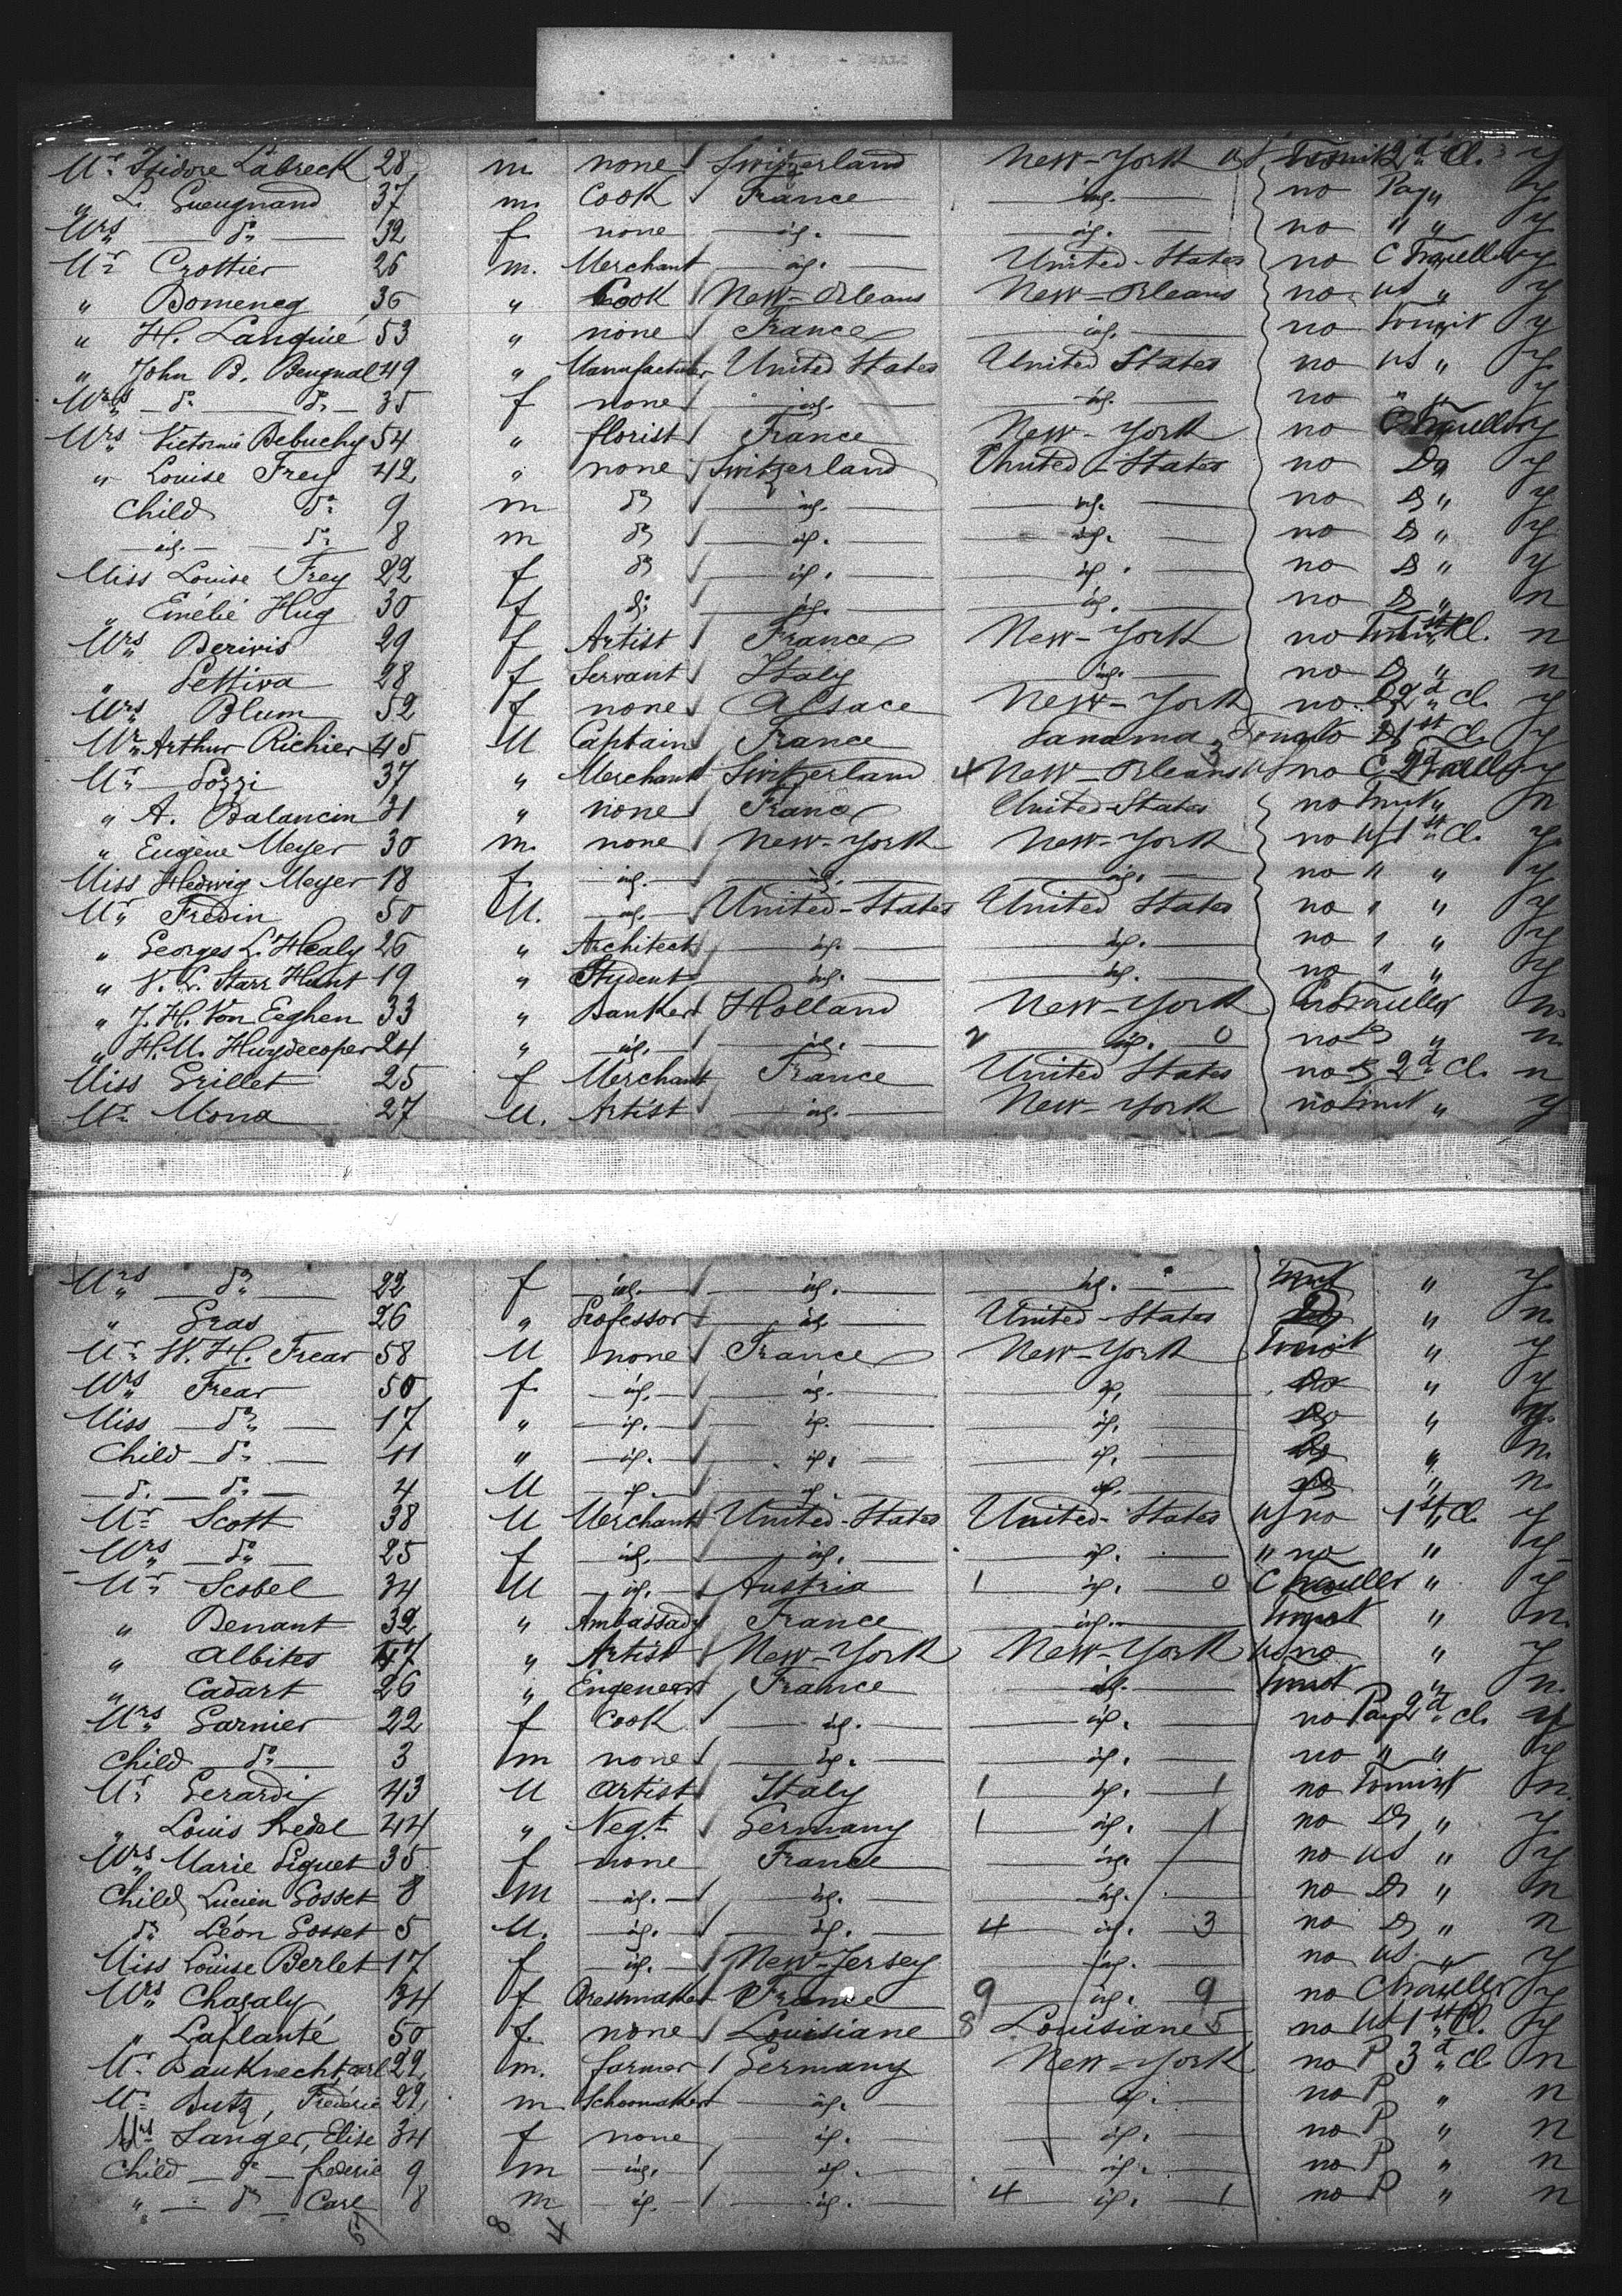 Mr Isidore Labreck 28 m none Switzerland New-York Tourist 2d Cl. y
" L. Gueugnand 37 m. Cook France id. no Pas " y
Mrs do 32 f none id. id. no " " y
Mr Crottier 26 m. Merchant id. United-States no C Traveller y
" Domeneg 36 " Cook New-Orleans New-Orleans no us " y
" H. Languié 53 " none France id. no Tourist y
" John B. Beugnal 49 " Manufacturer United States United States no us " y
Mrs do do 35 f none id. id. no " " y
Mrs Victorine Debuchy 54 " florist France New-York no C Traveller y
" Louise Frey 42 " none Switzerland United-States no Do y
Child do 9 m do id. id. no Do " y
id. do 8 m do id. id. no Do " y
Miss Louise Frey 22 f do id. id. no Do " y
" Emélie Hug 30 f do id. id. no Do " n
Mrs Derivis 29 f Artist France New-York no Tourist 1st Cl. n
" Pettiva 28 f Servant Italy id. no Do " n
Mrs Blum 52 f none Alsace New-York no Do 2d Cl. y
Mr Arthur Richier 45 M Captain France Panama 3 Do 1st Cl. y
Mr Pozzi 37 " Merchant Switzerland 4 New-Orleans us no C Traveller y
" A. Balancin 31 " none France United-States no Tourist " n
" Eugène Meyer 30 m. none New-York New-York no us 1st Cl. y
Miss Hedwig Meyer 18 f. id. id. id. no " " y
Mr Fredin 50 M. id. United-States United States no " " y
" Georges L. Healy 26 " Architect id. id. no " " y
" V. P. Starr Hunt 19 " Student id. id. no " " y
" J. H. Von Eeghen 33 " Banker Holland New-York C Traveller n.
" H. M. Huydecoper 24 " id. id. 2 id. 0 no Do " n
Miss Grillet 25 f Merchant France United States no Do 2d Cl. n
Mr Mona 27 M. Artist id. New-York no Tourist " y
Mrs do 22 f id. id. id. Tourist " y
" Gras 26 " Professor id. United-States Do " n.
Mr W. H. Frear 58 M none France New-York Tourist " y
Mrs Frear 50 f. id. id. id. Do " y
Miss do 17 " id. id. id. Do " y.
Child do 11 " id. id. id. Do " n.
do do 4 M id. id. id. Do " n.
Mr Scott 38 M Merchant United-States United-States us no 1st Cl. y
Mrs do 25 f id. id. id. " no " y
Mr Scobel 34 M id. Austria 1 id. 0 C Traveller " y
" Denant 32 " Ambassady France id. Tourist " n.
" Albites 47 " Artist New-York New-York us no " y
" Cadart 26 " Engeneer France id. Tourist " n.
Mrs Garnier 22 f Cook id. id. no Pas 2d Cl. y
Child do 3 m none id. id. no " " y
Mr Gerardi 43 M artist Italy 1 id. 1 no Tourist n.
" Louis Redel 44 " Negt Germany 1 id. 1 no Do " y
Mrs Marie Piguet 35 f none France id. no us " y
Child Lucien Gosset 8 M id. id. id. no Do " n
do Léon Gosset 5 M. id. id. 4 id. 3 no Do " n
Miss Louise Berlet 17 f id. New-Jersey id. no us " y
Mrs Chazaly 34 f. Dressmaker France 9 id. 9 no C Traveller y
" Laplanté 50 f. none Louisiane 8 Louisiane 5 no us 1st Cl. y
Mr Bauknecht, carl 22 m. farmer Germany New-York no P 3d Cl. n
Mr Butz, Frédéric 22 m Schoomaker id. id. no P " n
Mrs Langer, Elise 34 f none id. id. no P " n
Child do frederic 9 m id. id. id. no P " n
" do Carl 8 m id. id. 4 id. 1 no P " n
57 8 4